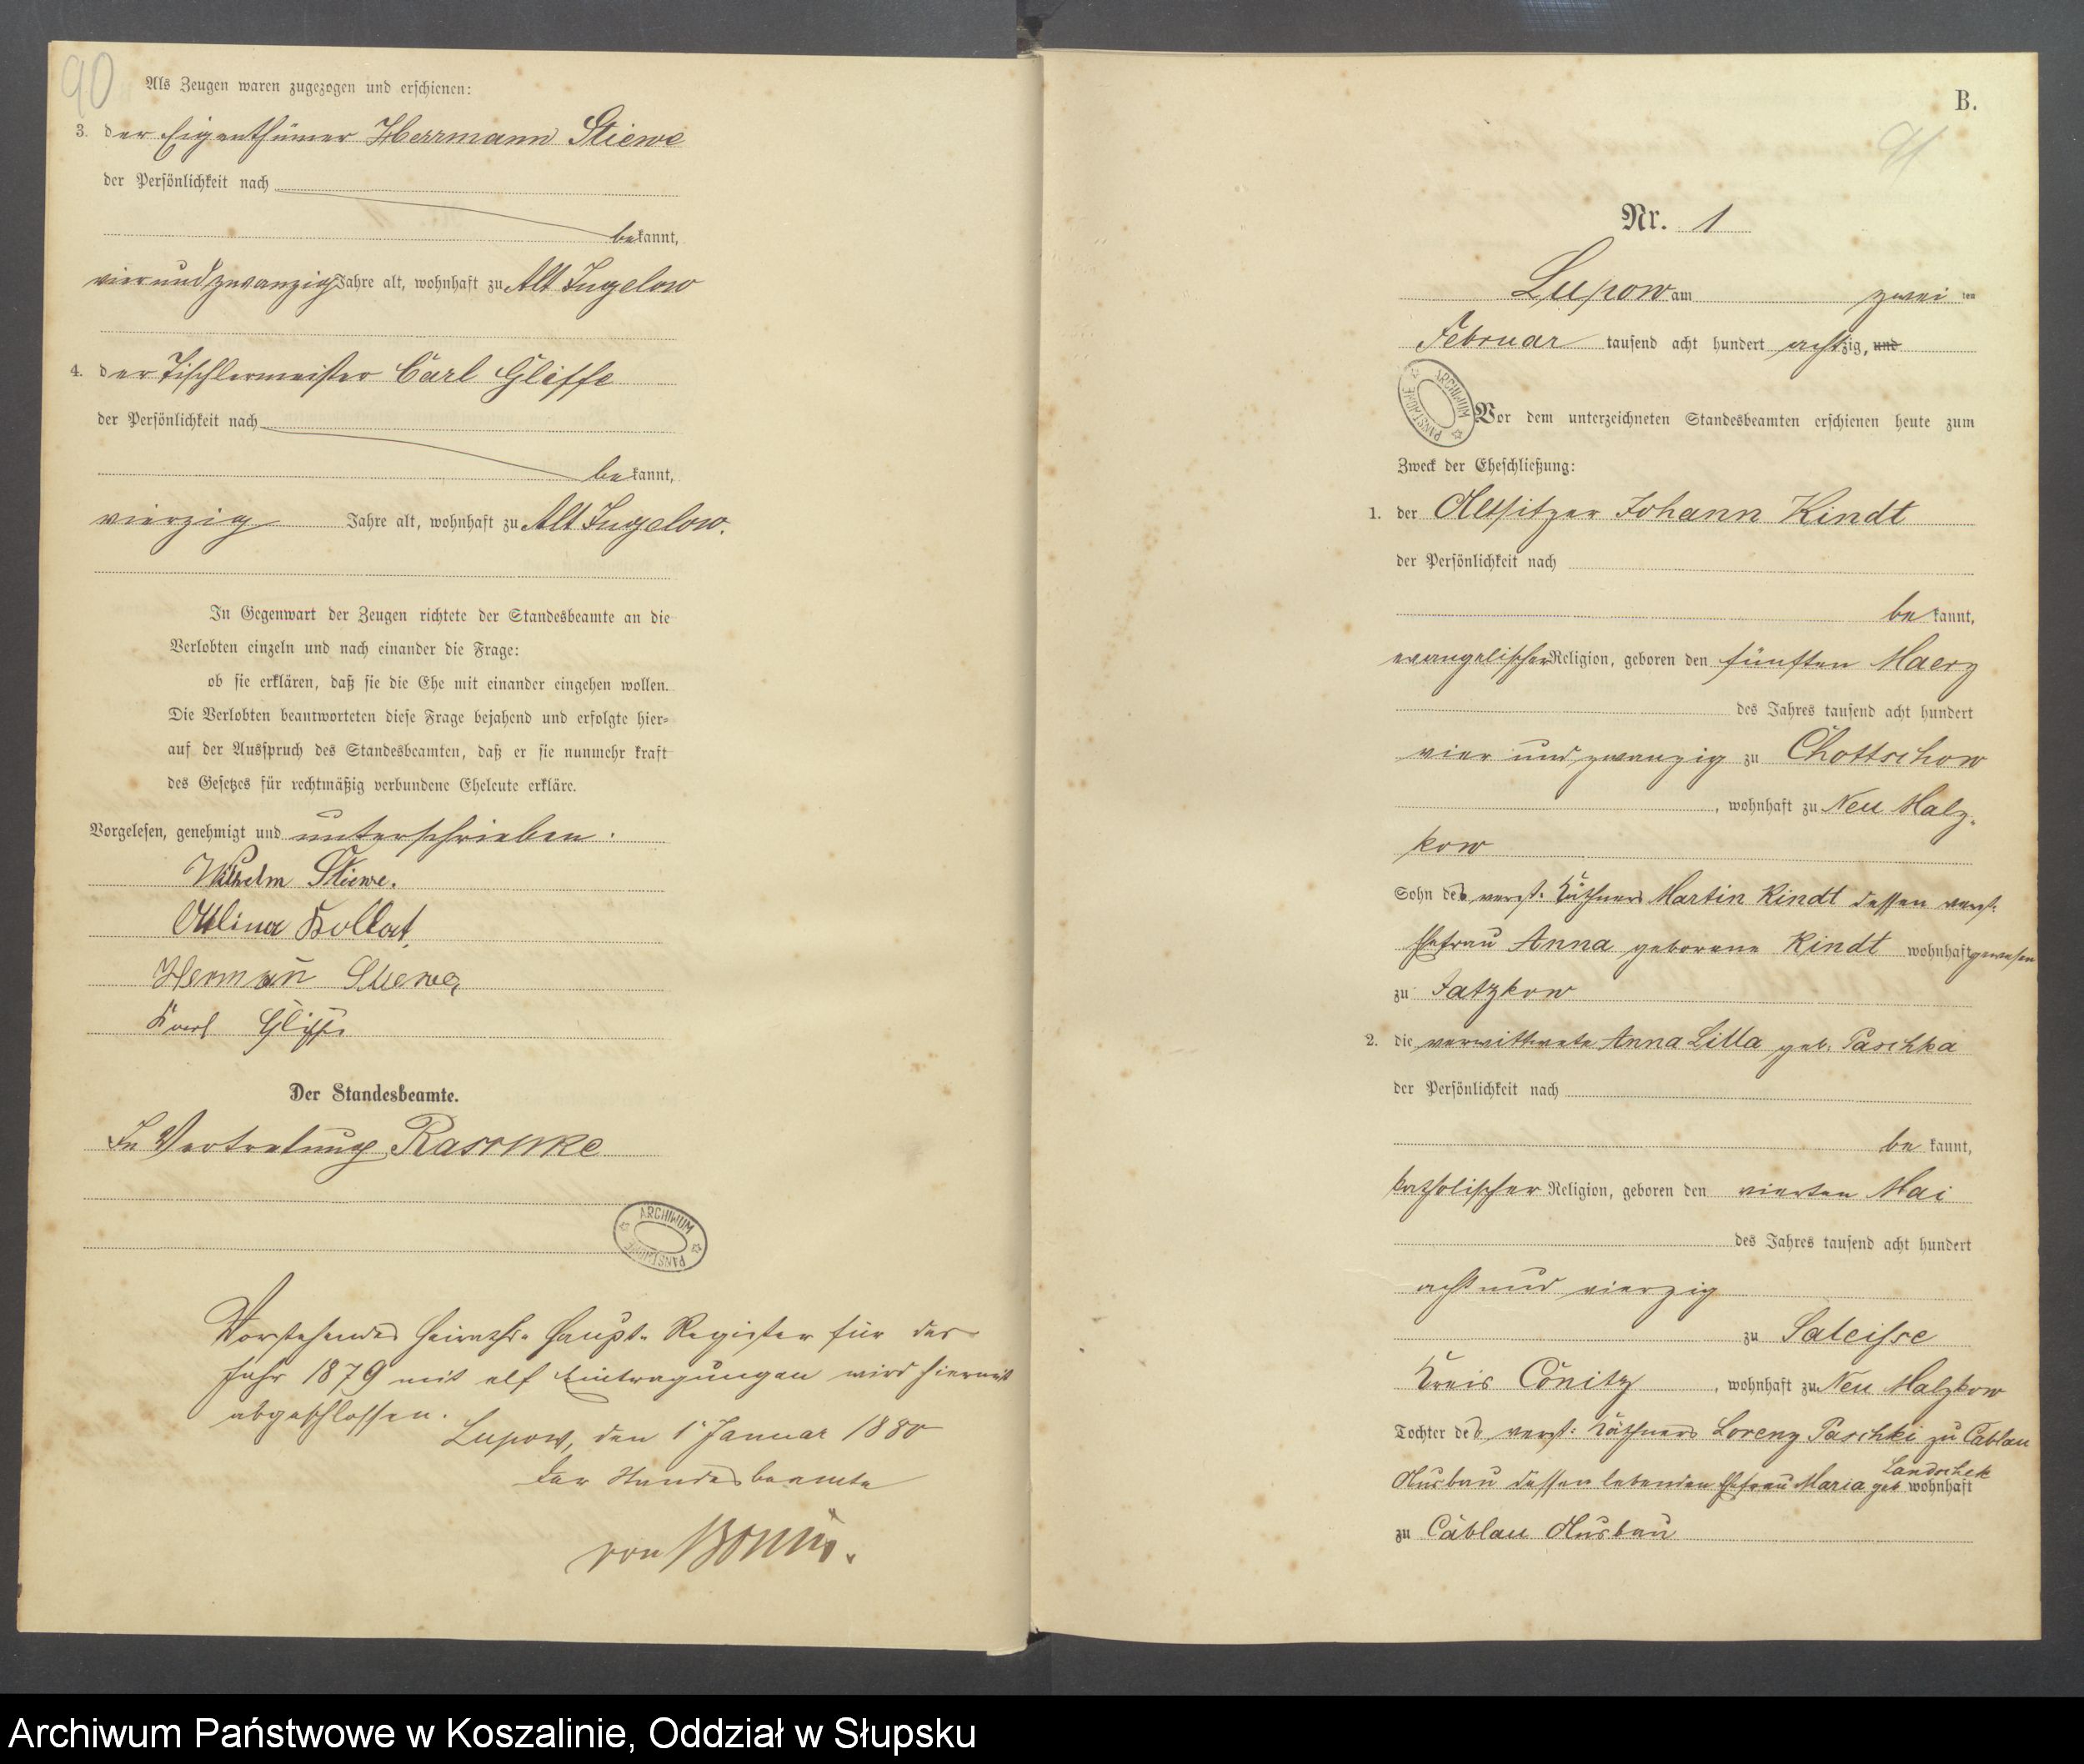 90
Als Zeugen waren zugezogen und erschienen:
3. der Eigenthümer Herrmann Stiewe
der Persönlichkeit nach
bekannt,
vierundzwanzig Jahre alt, wohnhaft zu Alt Jugelow
4. der Tischlermeister Carl Gliffe
der Persönlichkeit nach
bekannt,
vierzig Jahre alt, wohnhaft zu Alt Jugelow.
In Gegenwart der Zeugen richtete der Standesbeamte an die
Verlobten einzeln und nach einander die Frage:
ob sie erklären, daß sie die Ehe mit einander eingehen wollen.
Die Verlobten beantworteten diese Frage bejahend und erfolgte hier-
auf der Ausspruch des Standesbeamten, daß er sie nunmehr kraft
des Gesetzes für rechtmäßig verbundene Eheleute erkläre.
Vorgelesen, genehmigt und unterschrieben.
Wilhelm Stiewe.
Kollat
Hermann Stiewe
Karl Gliffe
Der Standesbeamte.
In Vertretung Raschke
ARCHIWUM PAŃSTWOWE
Vorstehendes Heiraths-Haupt-Register für das
Jahr 1879 mit elf Eintragungen wird hiermit
abgeschlossen.
Lupow, den 1 Januar 1880
Der Standesbeamte
von Bonin.
B.
91
Nr. 1
Lupow am zwei ten
Februar tausend acht hundert achtzig, und
ARCHIWUM PAŃSTWOWE
Vor dem unterzeichneten Standesbeamten erschienen heute zum
Zweck der Eheschließung:
1. der Altsitzer Johann Kindt
der Persönlichkeit nach
bekannt,
evangelischer Religion, geboren den fünften Maerz
des Jahres tausend acht hundert
vier und zwanzig zu Chottschow
, wohnhaft zu Neu Malz-
kow
Sohn des verst. Käthners Martin Kindt dessen verst.
Ehefrau Anna geborene Kindt wohnhaft gewesen
zu Jatzkow
2. die verwittwete Anna Litta geb. Paschka
der Persönlichkeit nach
bekannt,
katholischer Religion, geboren den vierten Mai
des Jahres tausend acht hundert
acht und vierzig
zu
Kreis Conitz, wohnhaft zu Neu Malzkow
Tochter des verst. Käthners Lorenz Paschki zu Cablau
Landschek
Ausbau dessen lebenden Ehefrau Maria geb wohnhaft
zu Cablau Ausbau
Archiwum Państwowe w Koszalinie, Oddział w Słupsku